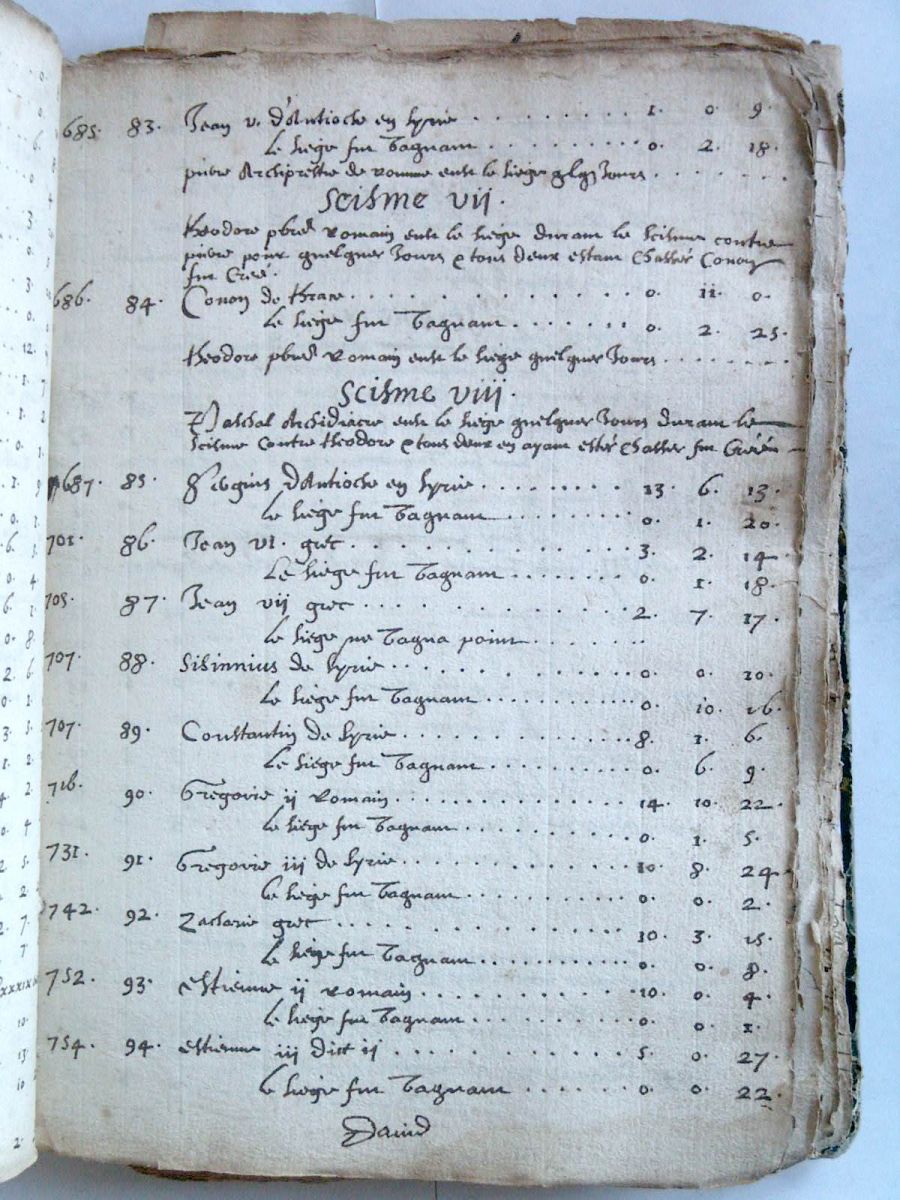 685. 83. Jean v. d'Antioche en Syrie . . . . . . . . 1. 0 9.
Le siege fut vaquant . . . . . . . . . 0. 2. 18.
pierre Archiprestre de Romme eust le siege qlqs Jours . . . . . . .
Scisme vii.
theodore pbre Romain eust le siege durant le scisme contre
pierre pour quelques Jours & tous deux estant chassés Conon
fut Creé.
686. 84. Conon de thrace . . . . . . . . . . . 0. 11. 0.
Le siege fut vaquant . . . . . . . 0. 2. 23.
theodore pbre Romain eust le siege quelques Jours . . . . . .
Scisme viii.
Paschal Archidiacre eust le siege quelques Jours durant le
Scisme contre theodore & tous deux en ayant esté chasses fut Creé
687. 85. Sergius d'Antioche en Syrie . . . . . . . . 13. 6. 13.
Le siege fut vaquant . . . . . . . . 0. 1. 20.
701. 86. Jean vi. grec . . . . . . . . . . . 3. 2. 14
Le siege fut vaquant . . . . . . . 0. 1. 18.
705. 87. Jean vii grec . . . . . . . . . . . 2. 7. 17.
Le siege ne vaqua point . . . . . .
707. 88. Sisinnius de Syrie . . . . . . . . . . 0. 0. 20.
Le siege fut vaquant . . . . . . . . . 0. 10. 16.
707. 89. Constantin de Syrie . . . . . . . . . . 8. 1. 6.
Le siege fut vaquant . . . . . . . . . 0. 6. 9.
716. 90. Gregorie ii Romain . . . . . . . . . . . 14. 10. 22.
Le siege fut vaquant . . . . . . . . . 0. 1. 5.
731. 91. Gregorie iii de Syrie . . . . . . . . . . 10. 8. 24.
Le siege fut vaquant . . . . . . . . . 0. 0. 2.
742. 92. Zacharie grec . . . . . . . . . . . . . 10. 3. 15.
Le siege fut vaquant . . . . . . . . . 0. 0. 8.
752. 93. estienne ii Romain . . . . . . . . . . 10. 0. 4.
Le siege fut vaquant . . . . . . . . . 0. 0. 1.
754. 94. estienne iii dict ii . . . . . . . . . . 5. 0. 27.
Le siege fut vaquant . . . . . . 0. 0. 22.
David